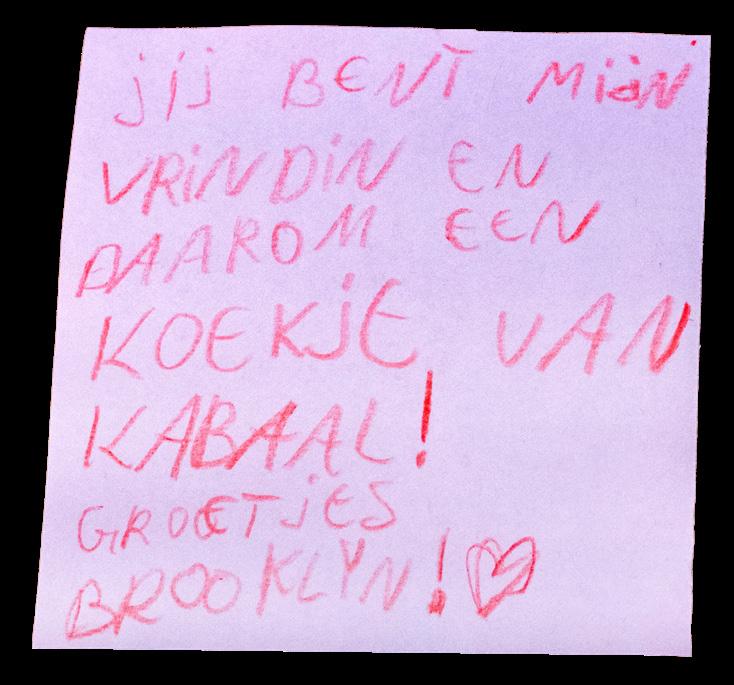 jij BENT MijN
VRiNDiN EN
DAAROM EEN
KOEKjE VAN
KABAAL!
GROETjES
BROOKLYN!